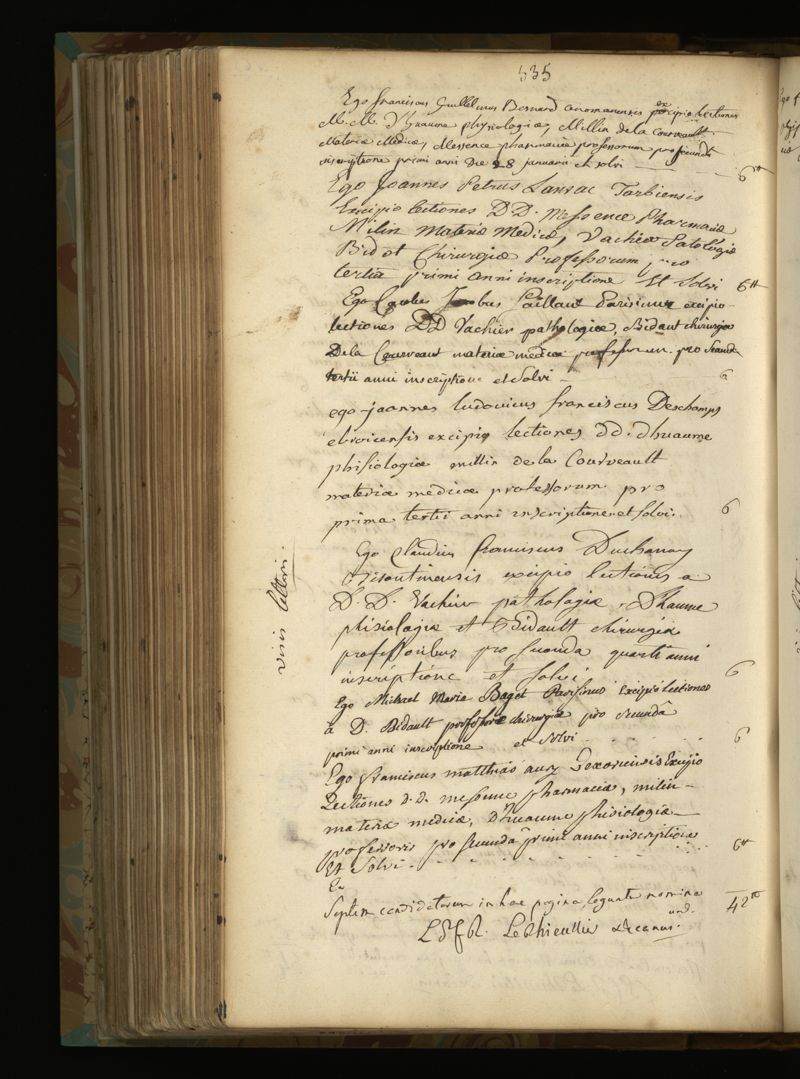 535
Ego franciscus Guillelmus Besnard cenomanensis excipio lectiones
M.M. Dhuaume physiologiæ, Millin de la Courveault
Materiæ Medicæ, Messence pharmaciæ professorum pro secunda
inscriptione primi anni Die 28 januarii et solvi 6tt
Ego Joannes Petrus Lansac Tarbiensis
Excipio lectiones D.D. Messence Pharmaciæ
Milin Materiæ Medicæ, Vachier Patologiæ
Bidot Chirurgiæ Professorum, pro
tertia primi anni inscriptione Et Solvi 6tt
Ego Jacobus Caillaut Parisinus excipio
lectiones DD Vachier pathologiæ, Bidaut chirurgiæ
De la Courveaut materiæ medicæ professorum pro secunda
tertii anni inscriptione et solvi 6
ego joannes ludovicus franciscus Deschamps
ebroicensis excipio lectiones dd. dhuaume
phisiologiæ millin de la Courveault
materiæ medicæ professorum pro
prima tertii anni inscriptione et solvi. 6
visis litteris.
Ego Claudius franciscus Duchanoy
excipio lectiones a
D.D. Vachier pathologiæ, Dhaume
phisiologiæ et Bidault chirurgiæ
professoribus pro secunda quarti anni
inscriptione et solvi 6
Ego Michael Maria Baget Parisinus Excipio Lectiones
a D. Bidault professore chirurgiæ pro secundâ
primi anni inscriptione et solvi 6
Ego franciscus matthias Excipio
Lectiones d.d. messence pharmaciæ, milin
materiæ medicæ, Dhuaume phisiologiæ
professoris pro secundâ primi anni inscriptione
Et Solvi 6tt
Septem candidatorum in hac pagina leguntur nomina
42tt
LeThieullier decanus.